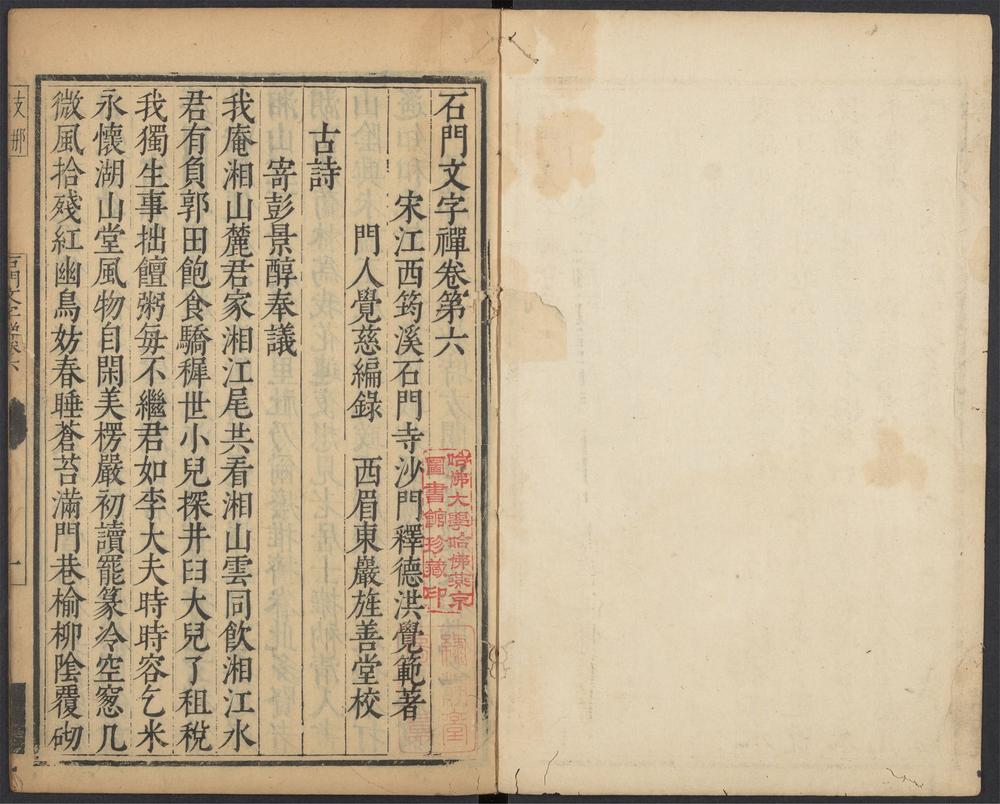 石門文字禪卷第六
宋江西筠溪石門寺沙門釋德洪覺範著
門人覺慈編錄　西眉東巖旌善堂校
古詩
寄彭景醇奉議
我庵湘山麓君家湘江尾共看湘山雲同飲湘江水
君有負郭田飽食驕稺世小兒探井臼大兒了租稅
我獨生事拙饘粥每不繼君如李大夫時時容乞米
永懷湖山堂風物自閑美楞嚴初讀罷篆冷空窻几
微風拾殘紅幽鳥妨春睡蒼苔滿門巷榆柳陰覆砌
支那
石門文字禪卷六
一
哈佛大學哈佛燕京
圖書館珍藏印